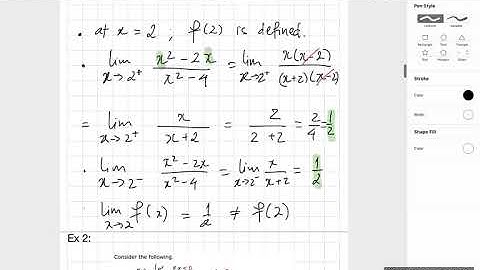 • at x = 2 , f(2) is defined.
• lim x→2⁺ x² - 2x / x² - 4 = lim x→2⁺ x(x-2) / (x+2)(x-2)
= lim x→2⁺ x / x+2 = 2 / 2+2 = 2/4 = 1/2
• lim x→2⁻ x² - 2x / x² - 4 = lim x→2⁻ x / x+2 = 1/2
lim x→2 f(x) = 1/2 ≠ f(2)
Ex 2:
Consider the following.
Pen Style
Rectangle
Stroke
Color
Shape Fill
Color